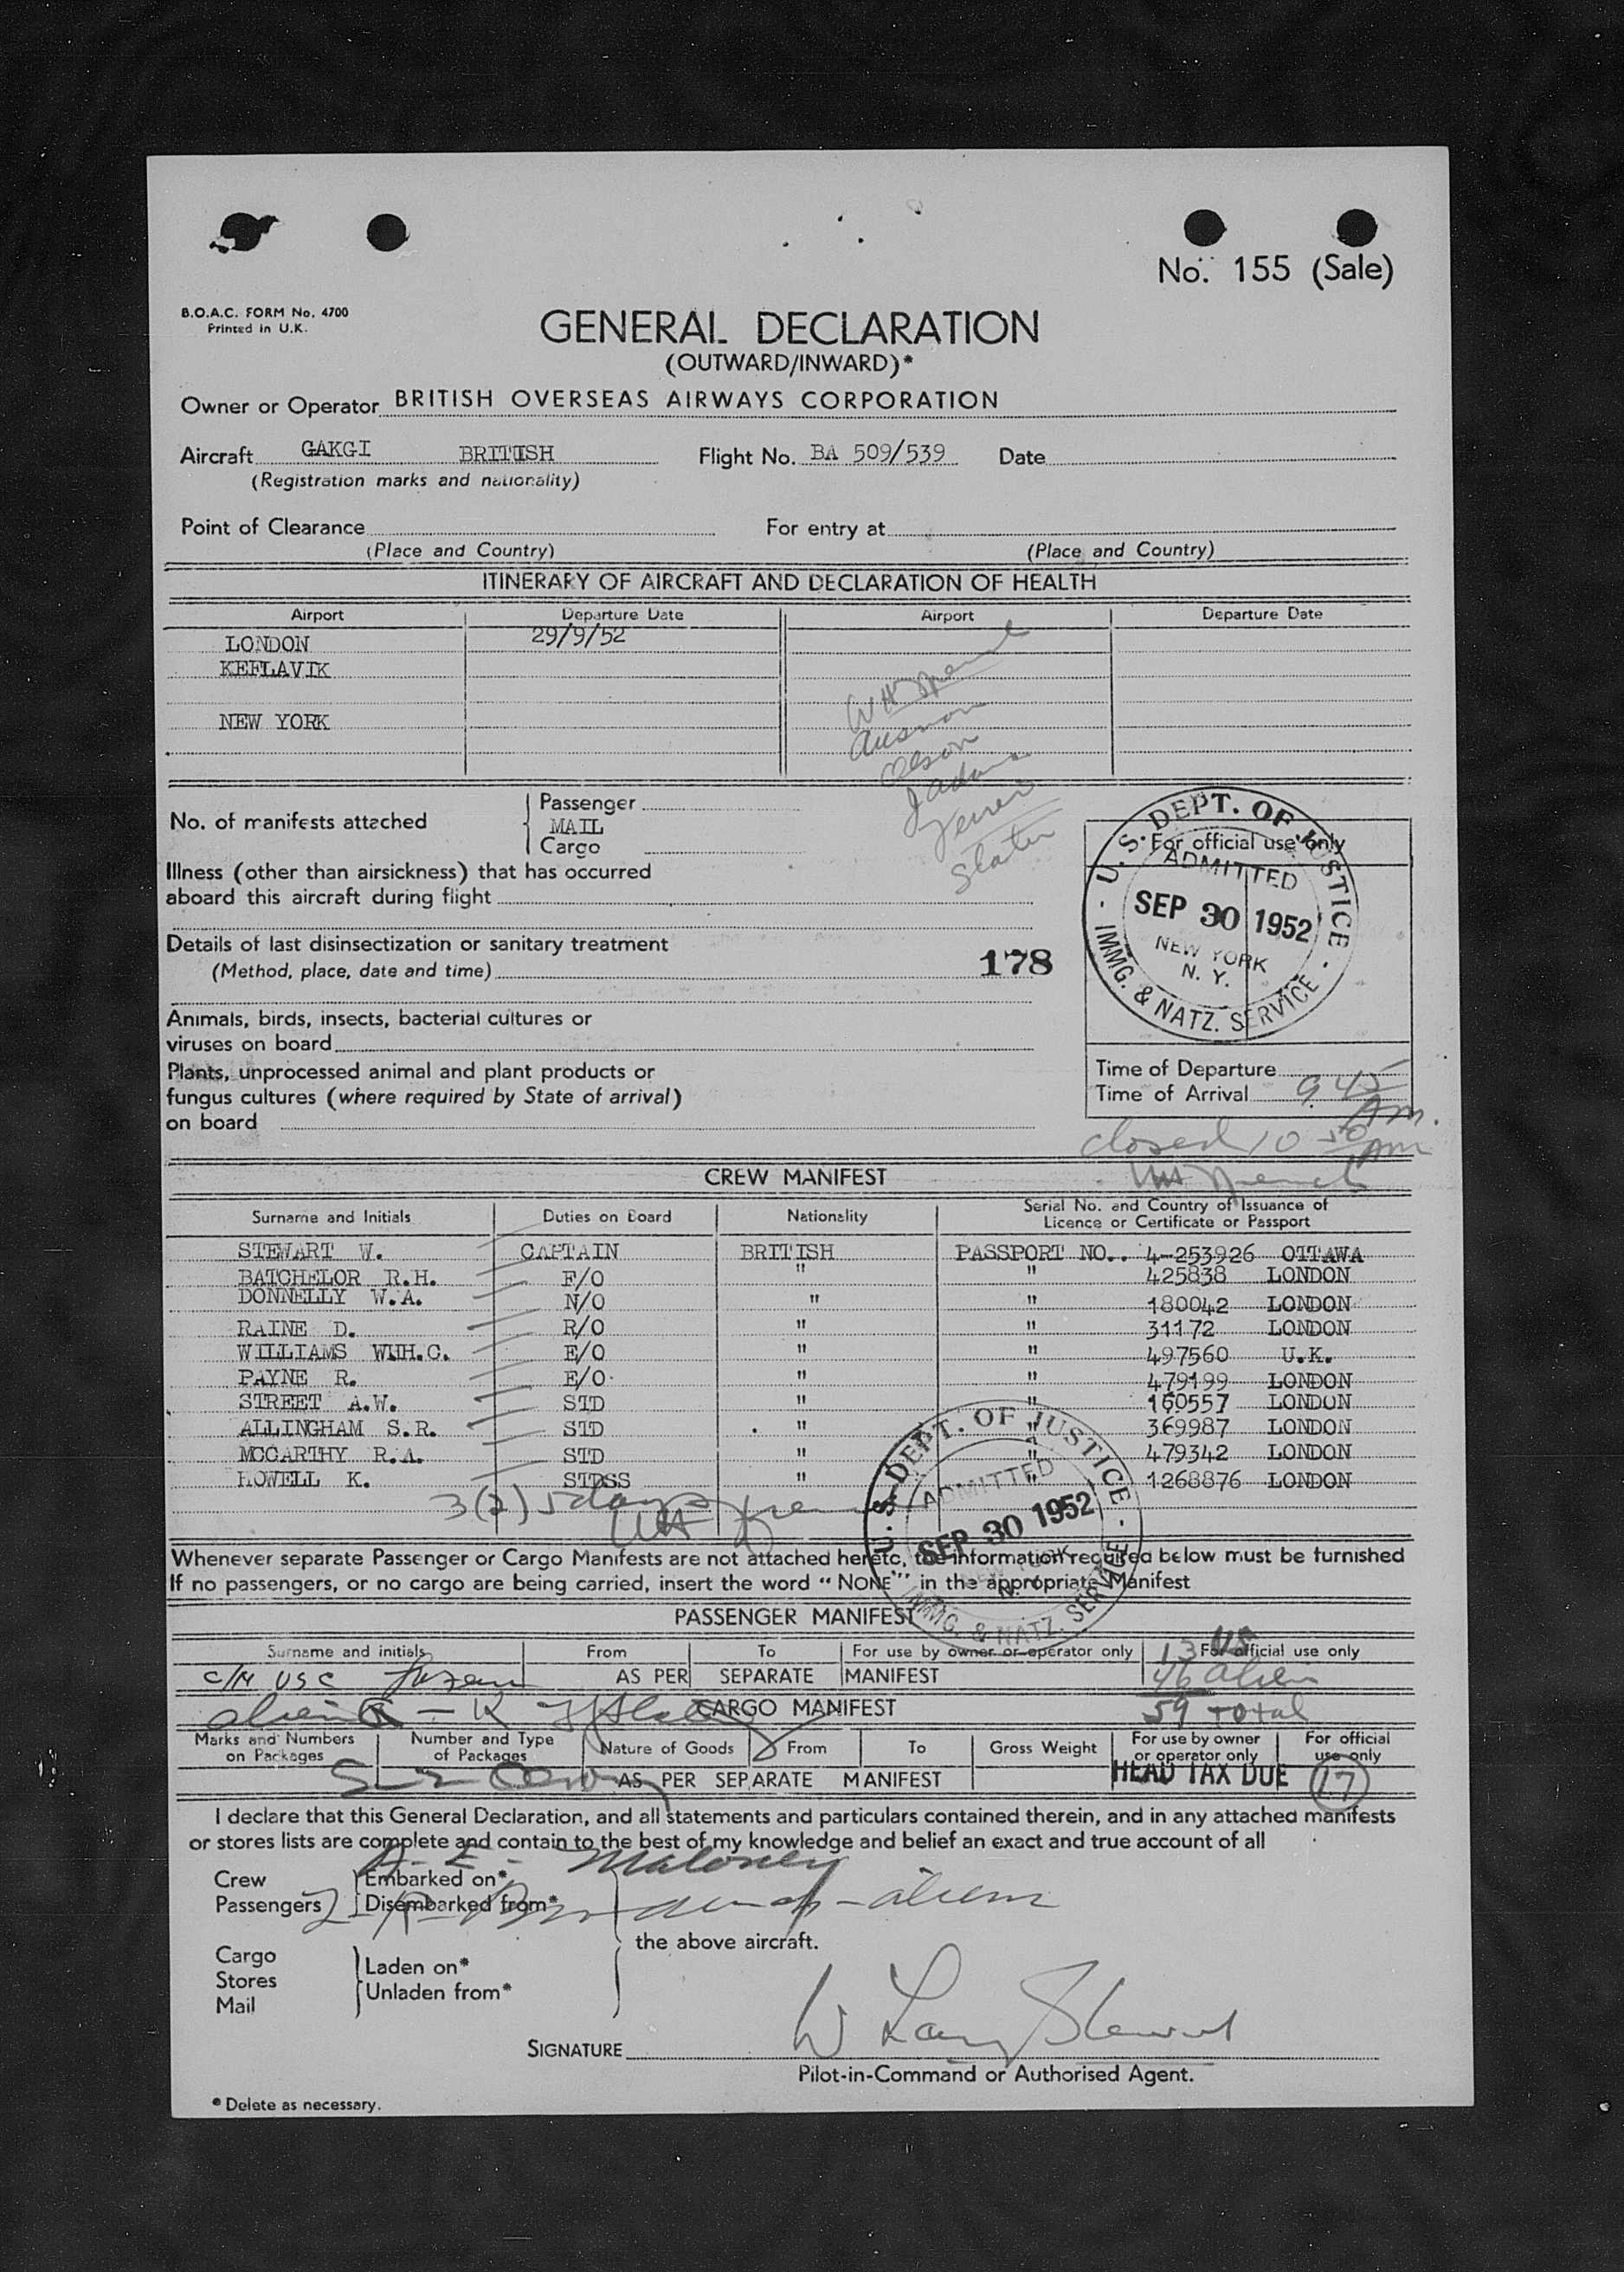 No. 155 (Sale)
B.O.A.C. FORM No. 4700
Printed in U.K.
GENERAL DECLARATION
(OUTWARD/INWARD)*
Owner or Operator BRITISH OVERSEAS AIRWAYS CORPORATION
Aircraft GAKGI BRITISH Flight No. BA 509/539 Date
(Registration marks and nationality)
Point of Clearance For entry at
(Place and Country) (Place and Country)
ITINERARY OF AIRCRAFT AND DECLARATION OF HEALTH
Airport Departure Date Airport Departure Date
LONDON 29/9/52
KEFLAVIK
NEW YORK
Olson
Slater
No. of manifests attached
Passenger
MAIL
Cargo
Illness (other than airsickness) that has occurred
aboard this aircraft during flight
Details of last disinsectization or sanitary treatment
(Method, place, date and time)
178
Animals, birds, insects, bacterial cultures or
viruses on board
Plants, unprocessed animal and plant products or
fungus cultures (where required by State of arrival)
on board
For official use only
U.S. DEPT. OF JUSTICE
ADMITTED
SEP 30 1952
NEW YORK
N. Y.
IMMG. & NATZ. SERVICE
Time of Departure
Time of Arrival 9 45 AM.
closed 10 50 AM
CREW MANIFEST
Surname and Initials Duties on Board Nationality Serial No. and Country of Issuance of
Licence or Certificate or Passport
STEWART W. CAPTAIN BRITISH PASSPORT NO.. 4-253926 OTTAWA
BATCHELOR R.H. F/O " " 425838 LONDON
DONNELLY W.A. N/O " " 180042 LONDON
RAINE D. R/O " " 31172 LONDON
WILLIAMS WHH.C. E/O " " 497560 U.K.
PAYNE R. E/O " " 479199 LONDON
STREET A.W. STD " " 160557 LONDON
ALLINGHAM S.R. STD " " 369987 LONDON
MCCARTHY R.A. STD " " 479342 LONDON
HOWELL K. STDSS " " 1268876 LONDON
3(2) 5 days
U.S. DEPT. OF JUSTICE
ADMITTED
SEP 30 1952
NEW YORK
N. Y.
IMMG. & NATZ. SERVICE
Whenever separate Passenger or Cargo Manifests are not attached hereto, the information required below must be furnished
If no passengers, or no cargo are being carried, insert the word "NONE" in the appropriate Manifest
PASSENGER MANIFEST
Surname and initials From To For use by owner or operator only For official use only
13 US
C/M USC AS PER SEPARATE MANIFEST 46 alien
CARGO MANIFEST
59 total
Marks and Numbers on Packages Number and Type of Packages Nature of Goods From To Gross Weight For use by owner or operator only For official use only
AS PER SEPARATE MANIFEST HEAD TAX DUE 17
I declare that this General Declaration, and all statements and particulars contained therein, and in any attached manifests
or stores lists are complete and contain to the best of my knowledge and belief an exact and true account of all
Maloney
Crew Embarked on*
Passengers Disembarked from* aliens
the above aircraft.
Cargo
Stores
Mail
Laden on*
Unladen from*
SIGNATURE W Stewart
Pilot-in-Command or Authorised Agent.
* Delete as necessary.